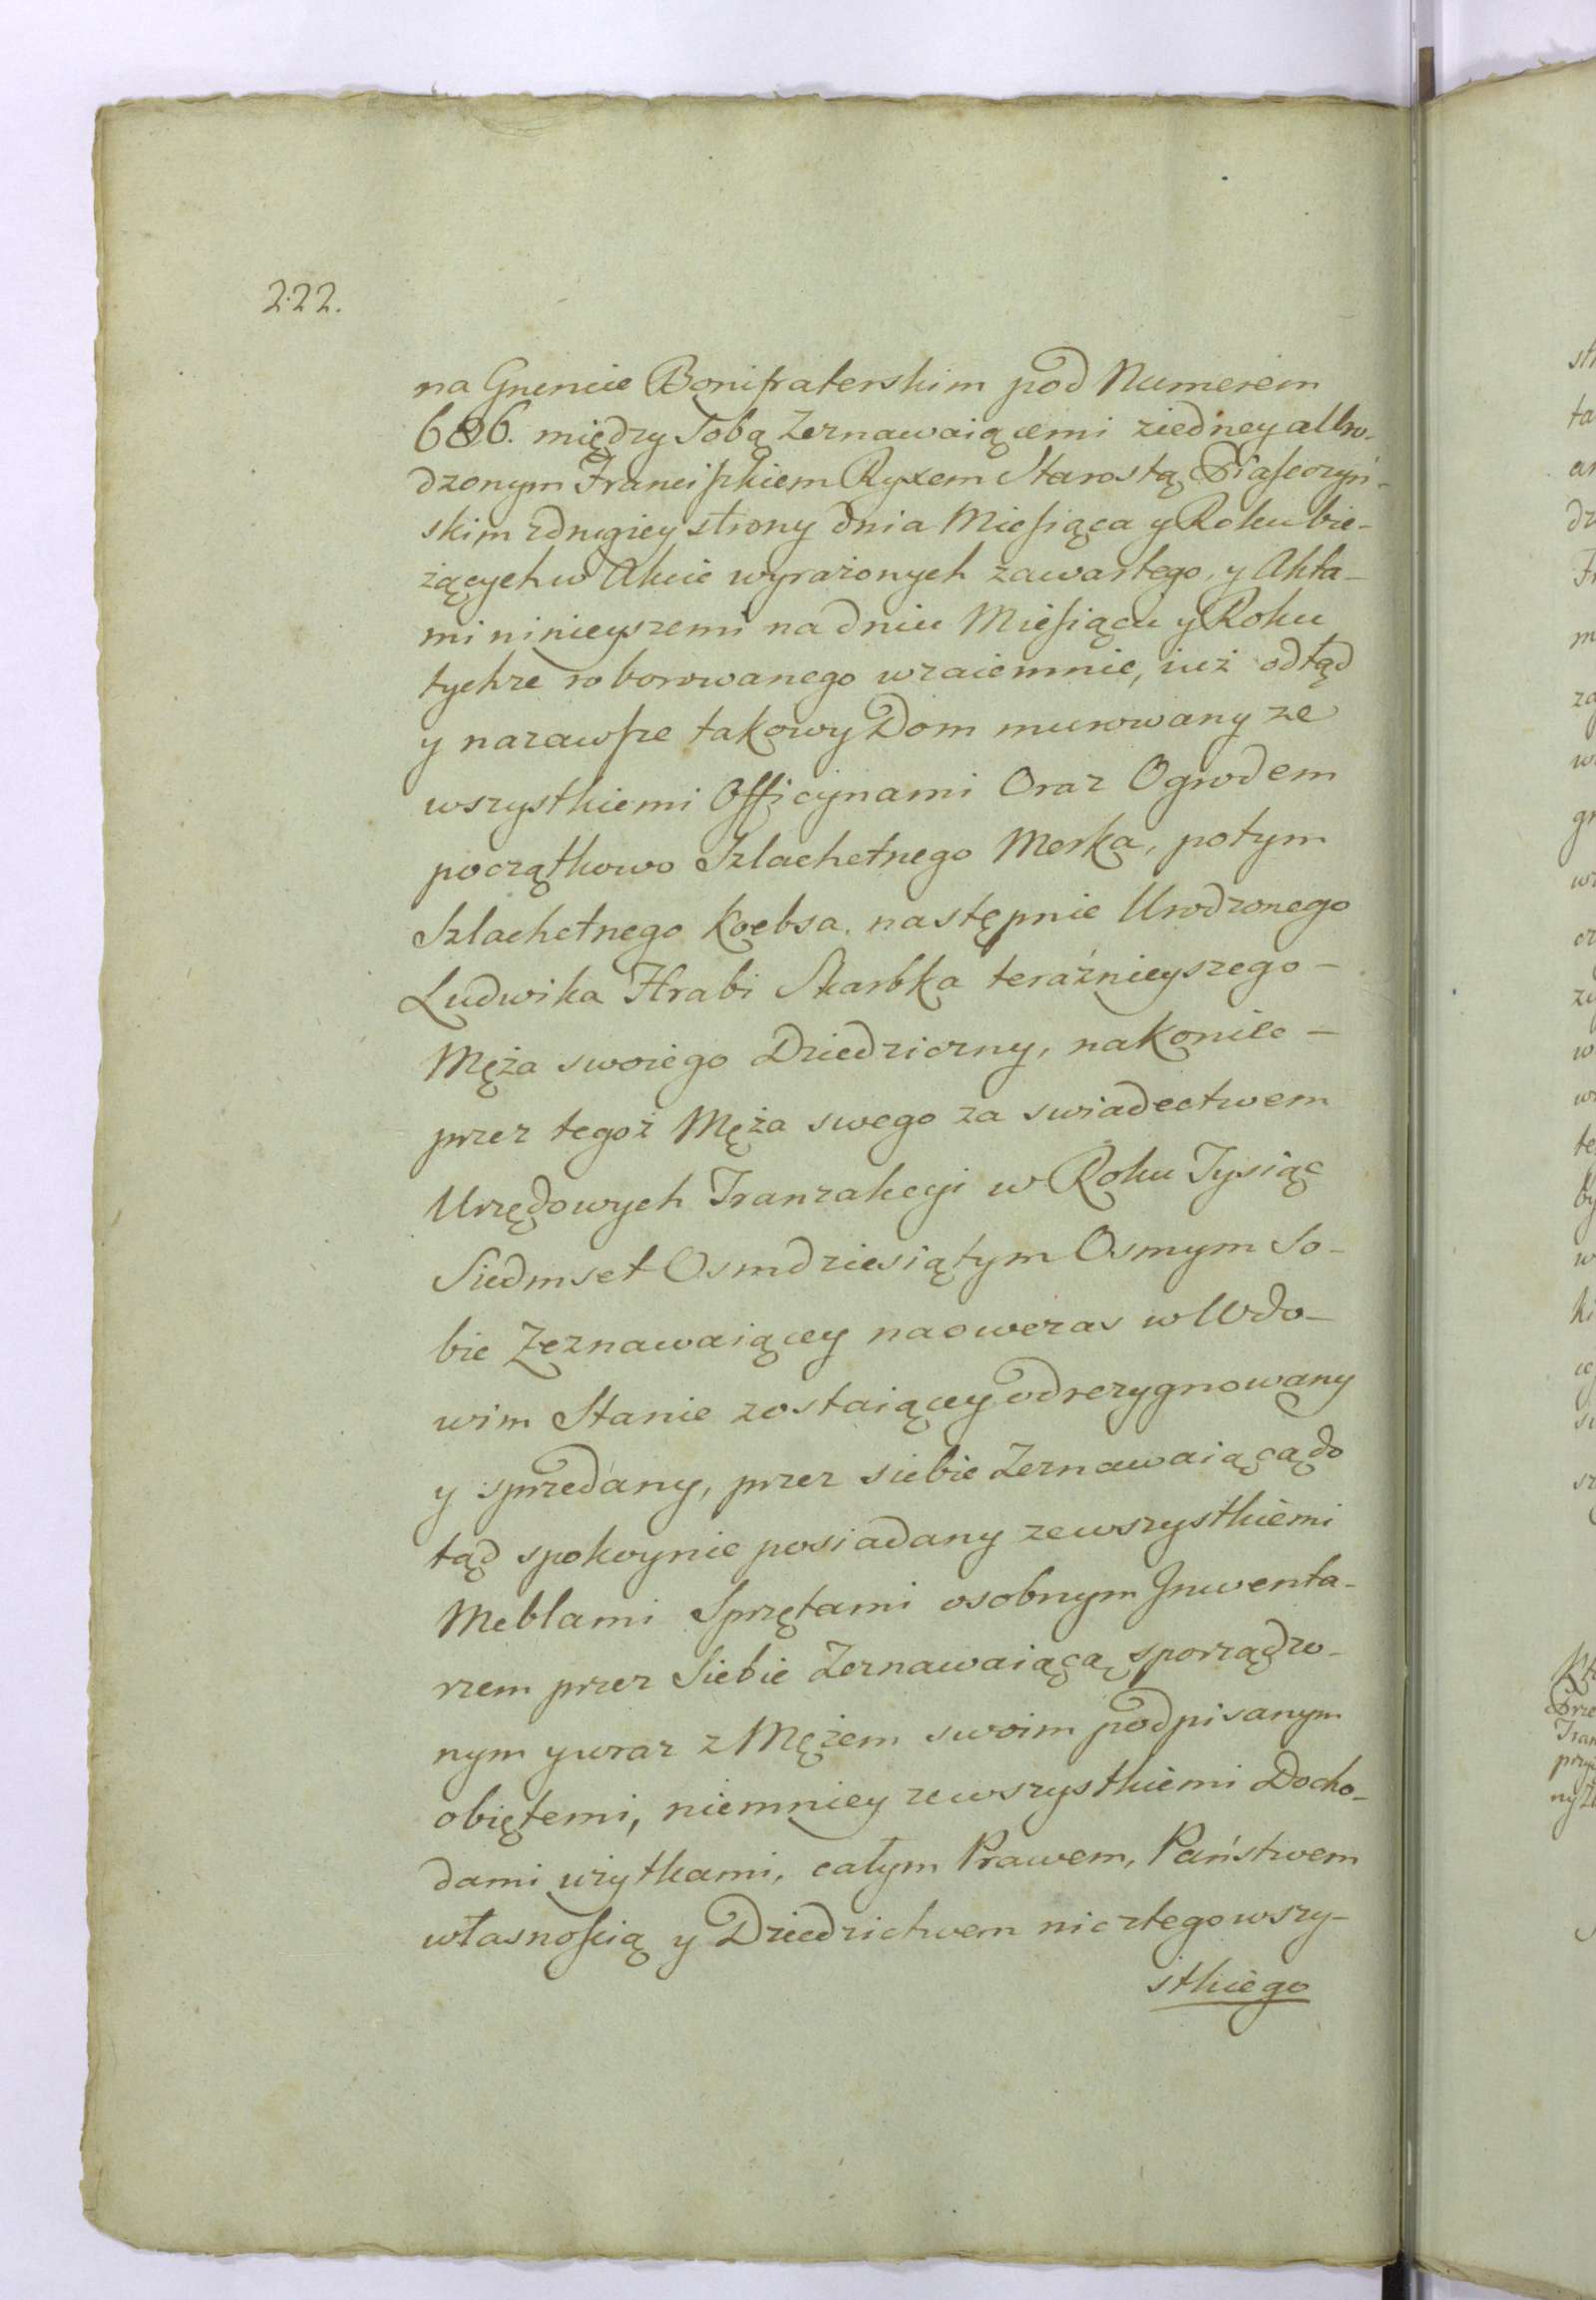 222.
na Gruncie Bonifraterskim pod Numerem
686. między Sobą Zeznawaiącemi ziedney a Uro-
dzonym Franciszkiem Ryxem Starostą Piaseczyń-
skim zdrugiey strony dnia Miesiąca y Roku bie-
żących w Akcie wyrażonych zawartego, y Akta-
mi ninieyszemi na dniu Miesiącu y Roku
tychże roborowanego wzaiemnie, iuż odtąd
y nazawsze takowy Dom murowany ze
wszystkiemi Officynami Oraz Ogrodem
początkowo Szlachetnego Merka, potym
Szlachetnego Koebsa. następnie Urodzonego
Ludwika Hrabi Skarbka teraźnieyszego -
Męża swoiego Dziedziczny, nakoniec -
przez tegoż Męża swego za swiadectwem
Urzędowych Tranzakcyi w Roku Tysiąc
Siedmset Osmdziesiątym Osmym So-
bie Zeznawaiącey naowczas w Wdo-
wim Stanie zostaiącey odrezygnowany
y sprzedany, przez siebie Zeznawaiącą do
tąd spokoynie posiadany zewszystkiemi
Meblami Sprzętami osobnym Inwenta-
rzem przez Siebie Zeznawaiącą sporządzo-
nym y wraz z Mężem swoim podpisanym
obiętemi, niemniey zewszystkiemi Docho-
dami użytkami, całym Prawem, Państwem
własnością y Dziedzictwem nic ztego wszy-
stkiego